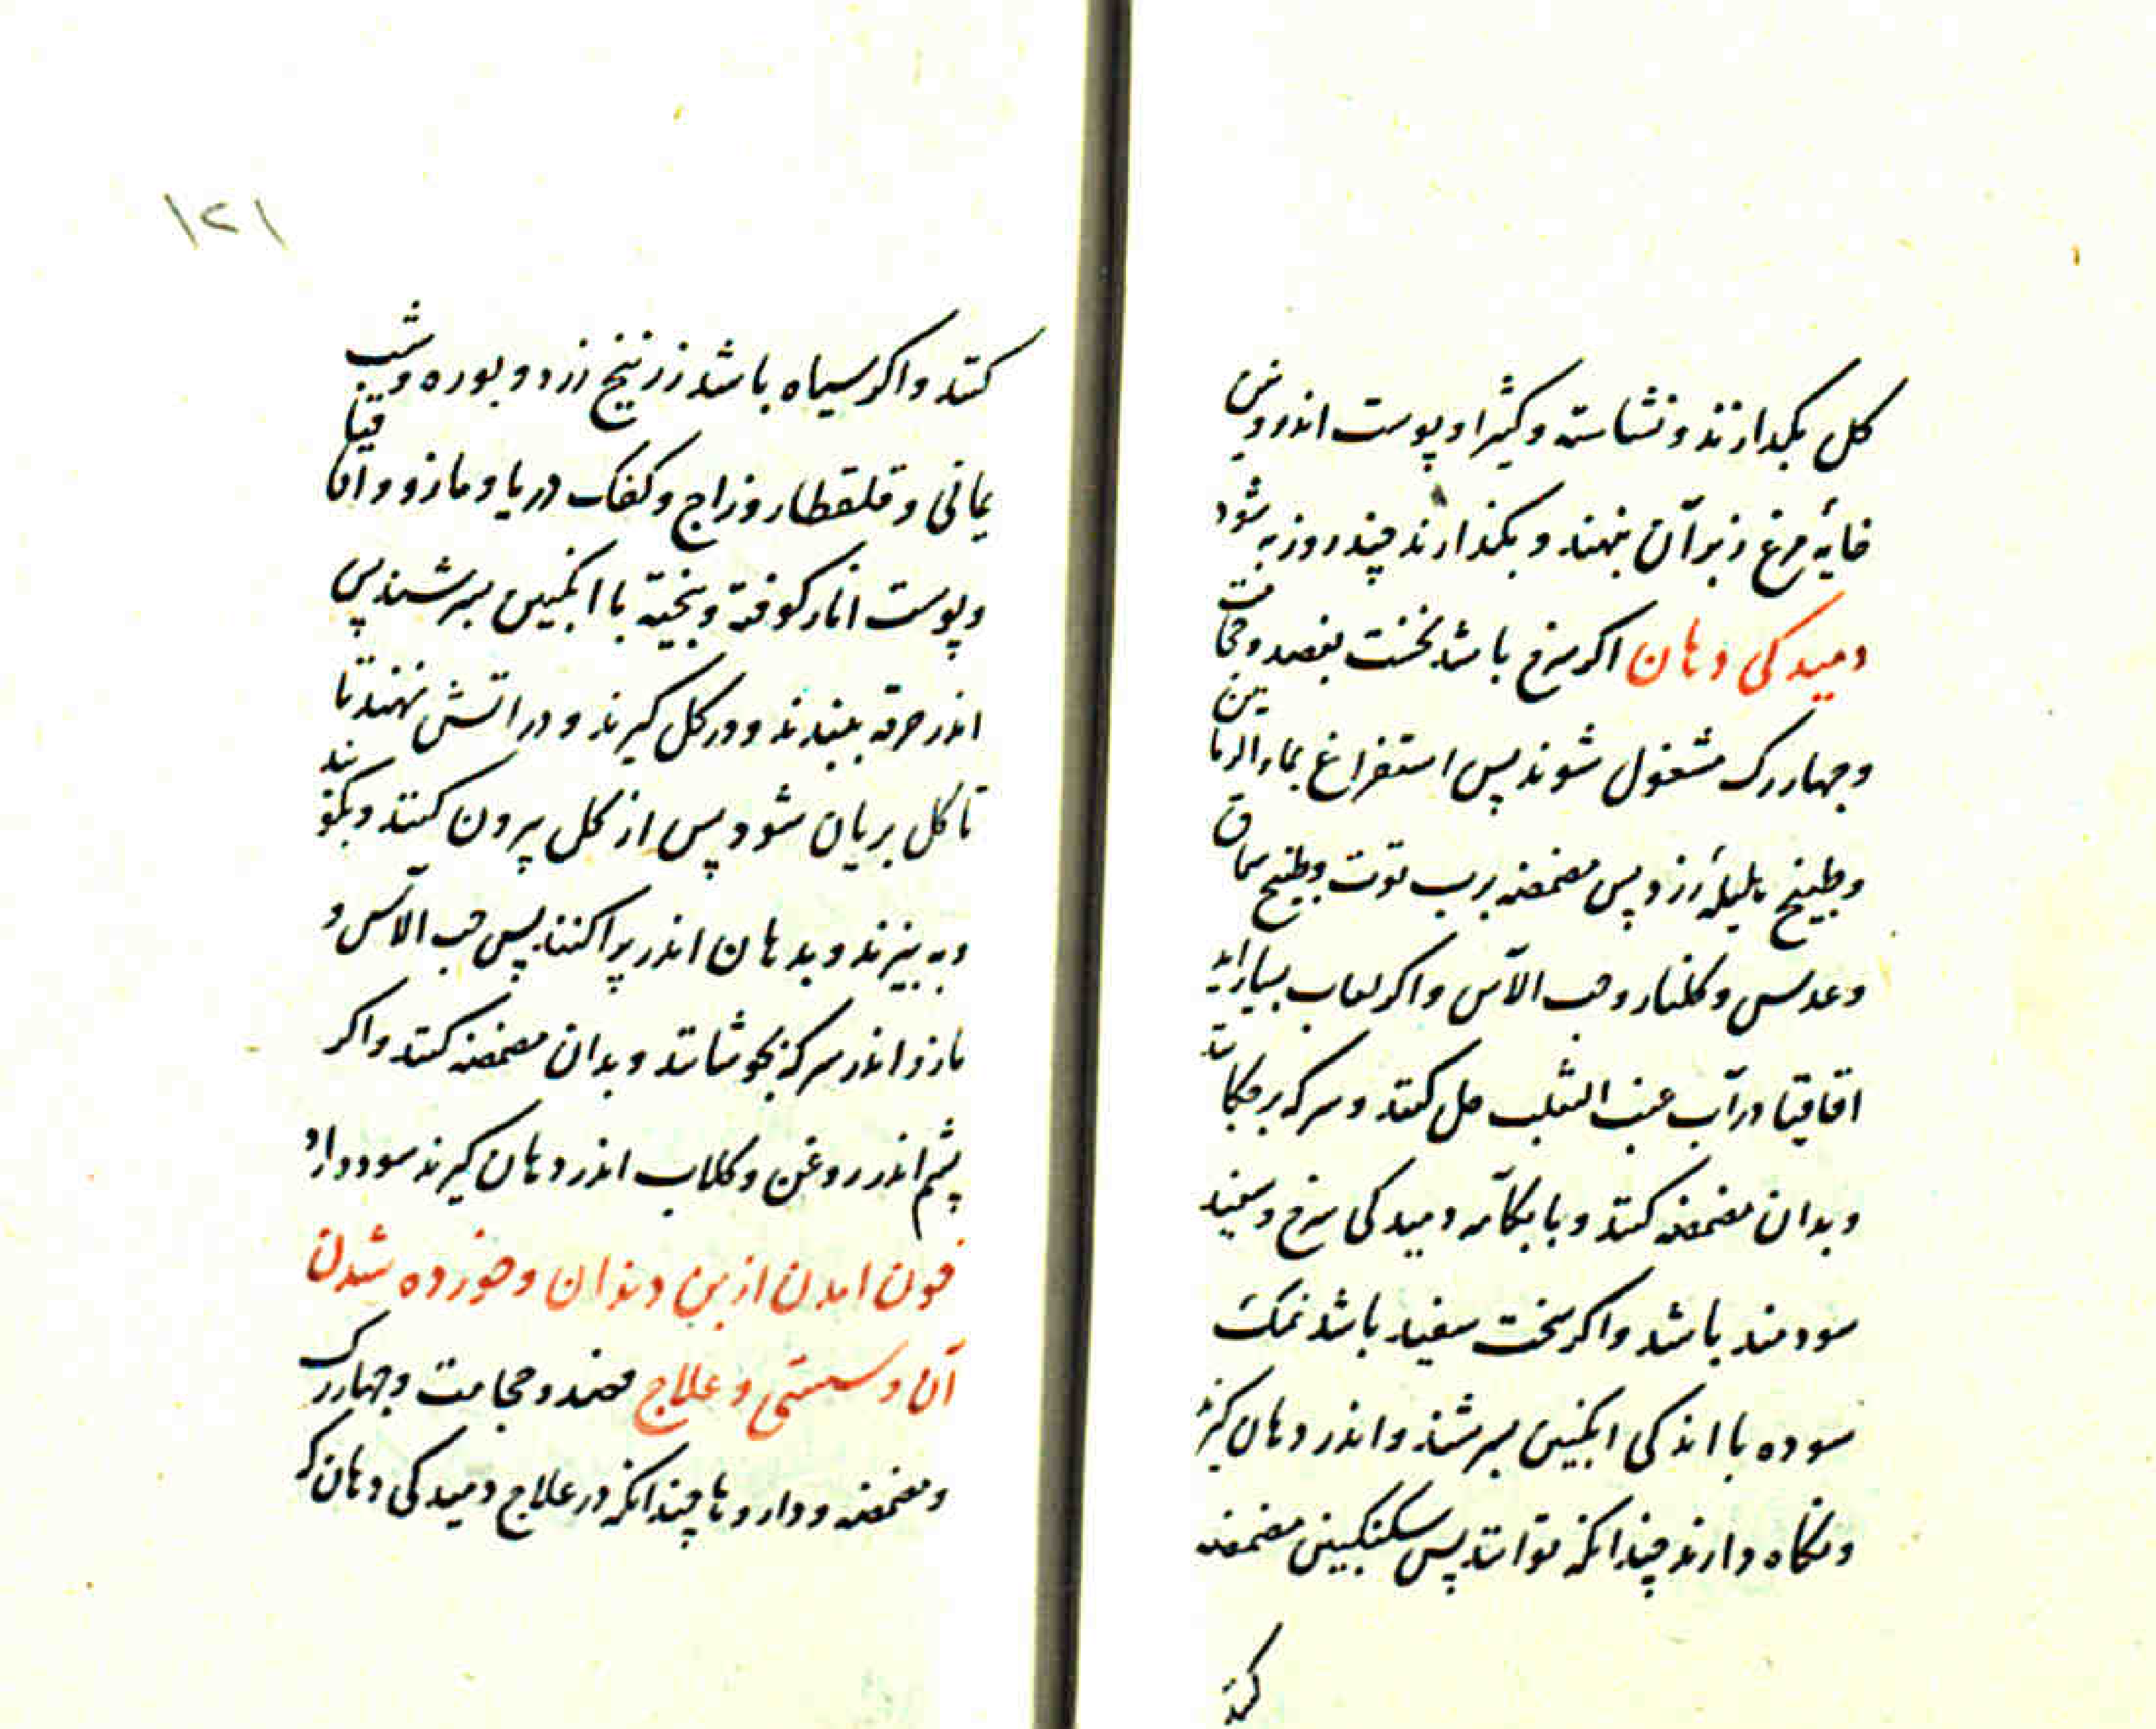 کل بکدازند و نشاسته و کثیرا و پوست اندرونی
خایهٔ مرغ زبر آن بنهند و بکذارند چند روز به شود
دمیدکی دهان اکر سرخ باشد نخست بفصد و حجامت
و چهاررک مشغول شوند پس استفراغ بماء الرمانین
و طبیخ هلیلهٔ زرد پس مضمضه برب توت و طبیخ سماق
و عدس و کلنار و حب الآس و اکر لعاب بسیار اید
اقاقیا در آب عنب الثعلب حل کنند و سرکه برچکانند
و بدان مضمضه کنند و بابکامه دمیدکی سرخ و سفید
سودمند باشد و اکر سخت سفید باشد نمک
سوده با اندکی انکبین بسرشند و اندر دهان کیرند
و نکاه دارند چندانکه توانند پس سکنکبین مضمضه
کنند
۱۲۱
کنند و اکر سیاه باشد زرنیخ زرد و بوره و شب
یمانی و قلقطار و زاج و کفک دریا و مازو و اقاقیا
و پوست انار کوفته و بیخته با انکبین بسرشند پس
اندر خرقه ببندند و در کل کیرند و در اتش نهند تا
تا کل بریان شود پس از کل بیرون کنند و بکوبند
و به بیزند و بدهان اندر پراکنند پس حب الآس و
مازو اندر سرکه بجوشانند و بدان مضمضه کنند و اکر
پشم اندر روغن و کلاب اندر دهان کیرند سود دارد
خون امدن از بن دندان و خورده شدن
آن و سستی و علاج فصد و حجامت و چهاررک
و مضمضه و داروها چندانکه در علاج دمیدکی دهان که